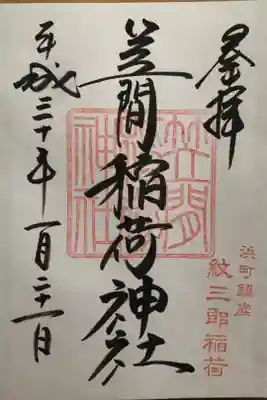 拝
浜町鎮座
紋三郎稲荷
笠間稲荷神社
笠間稲荷神社
平成三十年一月二十一日